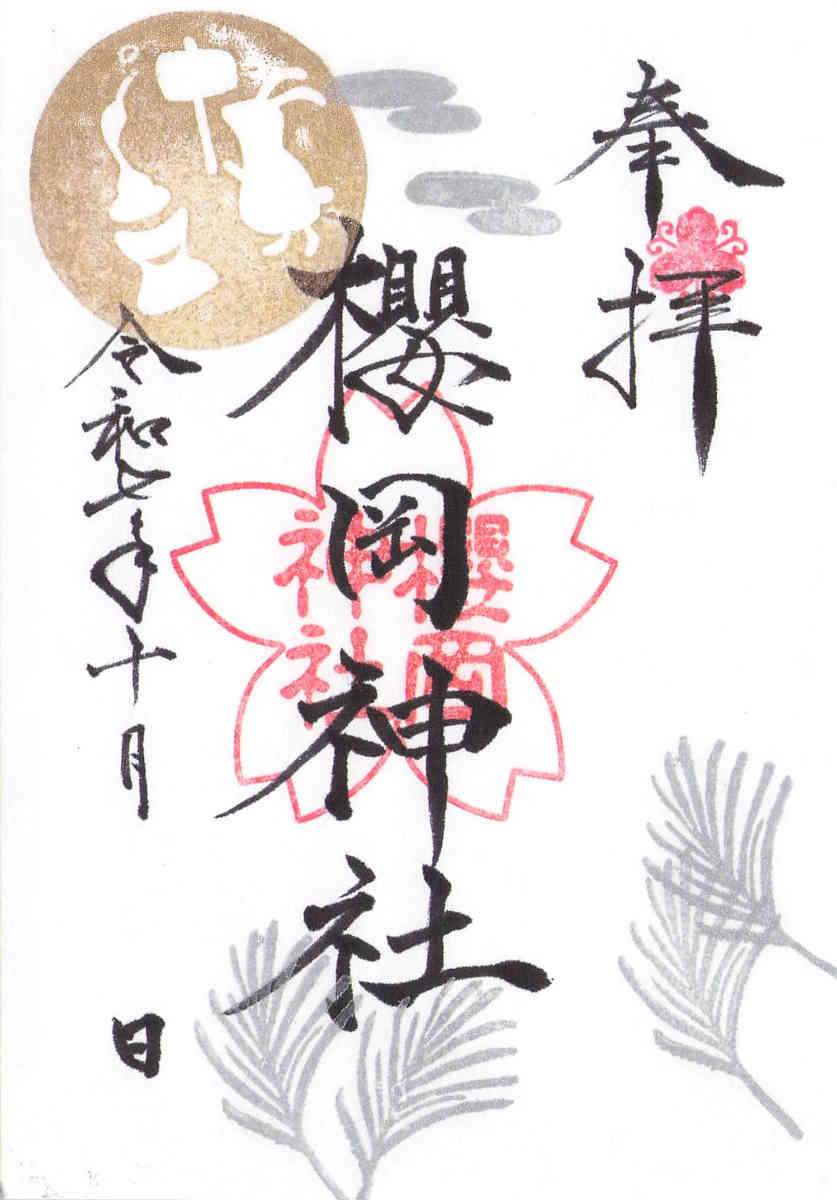 奉拝
櫻岡神社
櫻岡
神社
令和七年十月 日